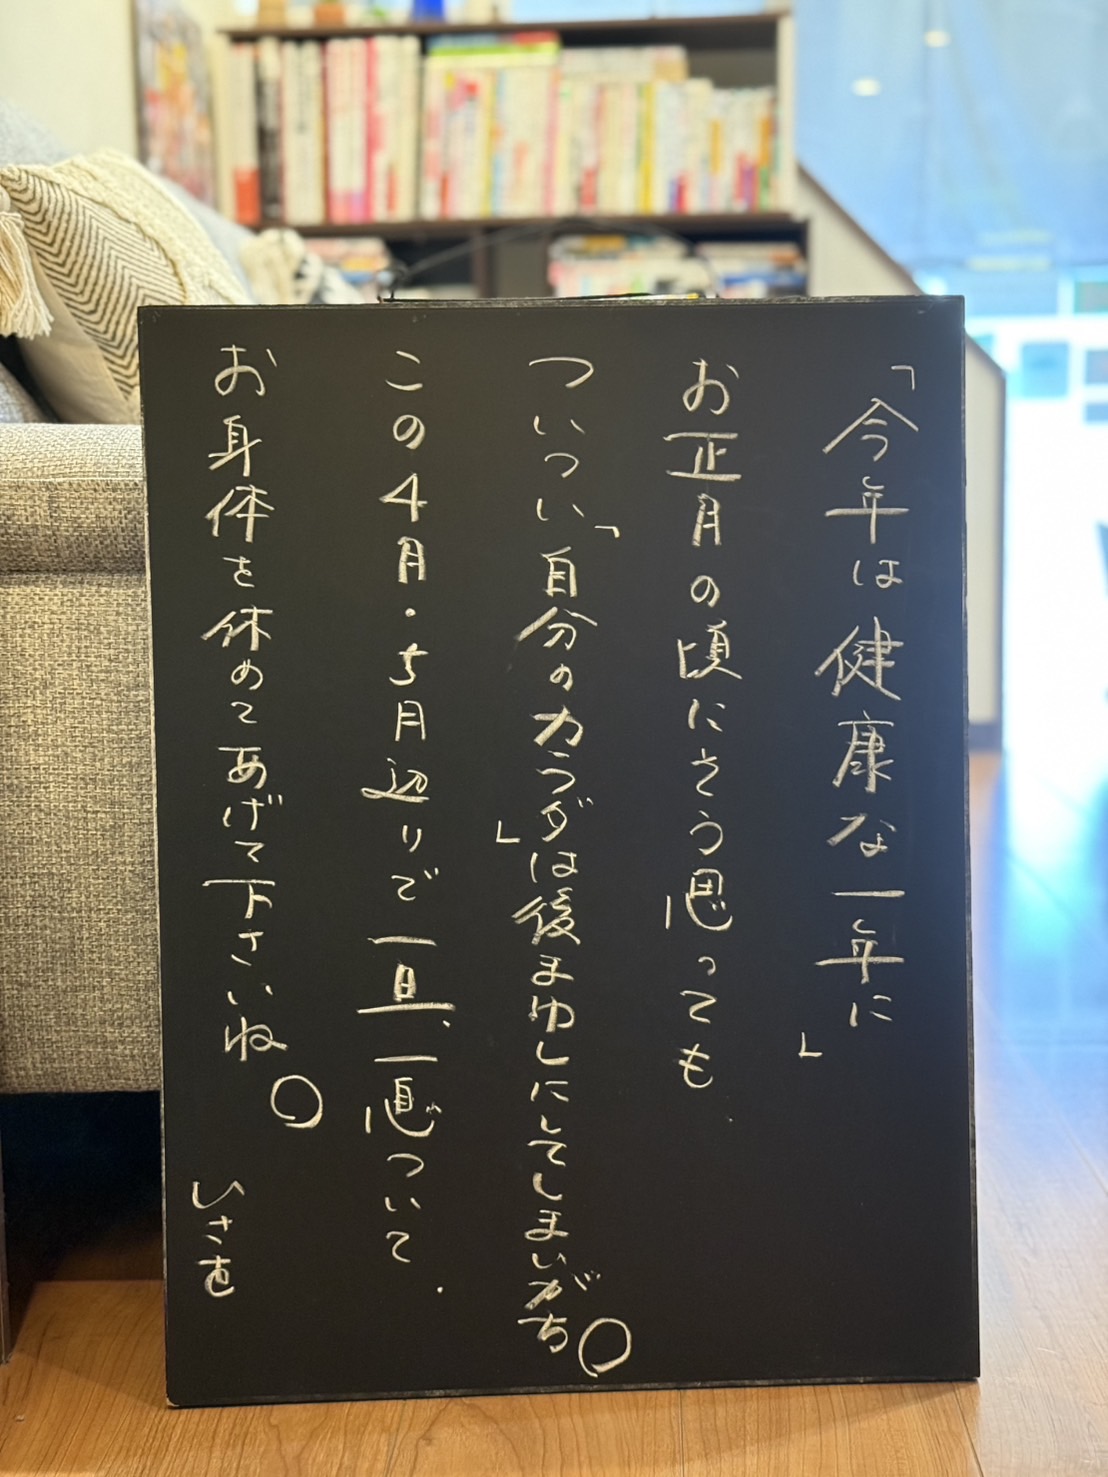 「今年は健康な一年に」
お正月の頃にそう思っても、
ついつい「自分のカラダは後まゆしにしてしまいがち」。
この4月・5月辺りで一旦、一息ついて、
お身体を休めてあげて下さいね。
いさを